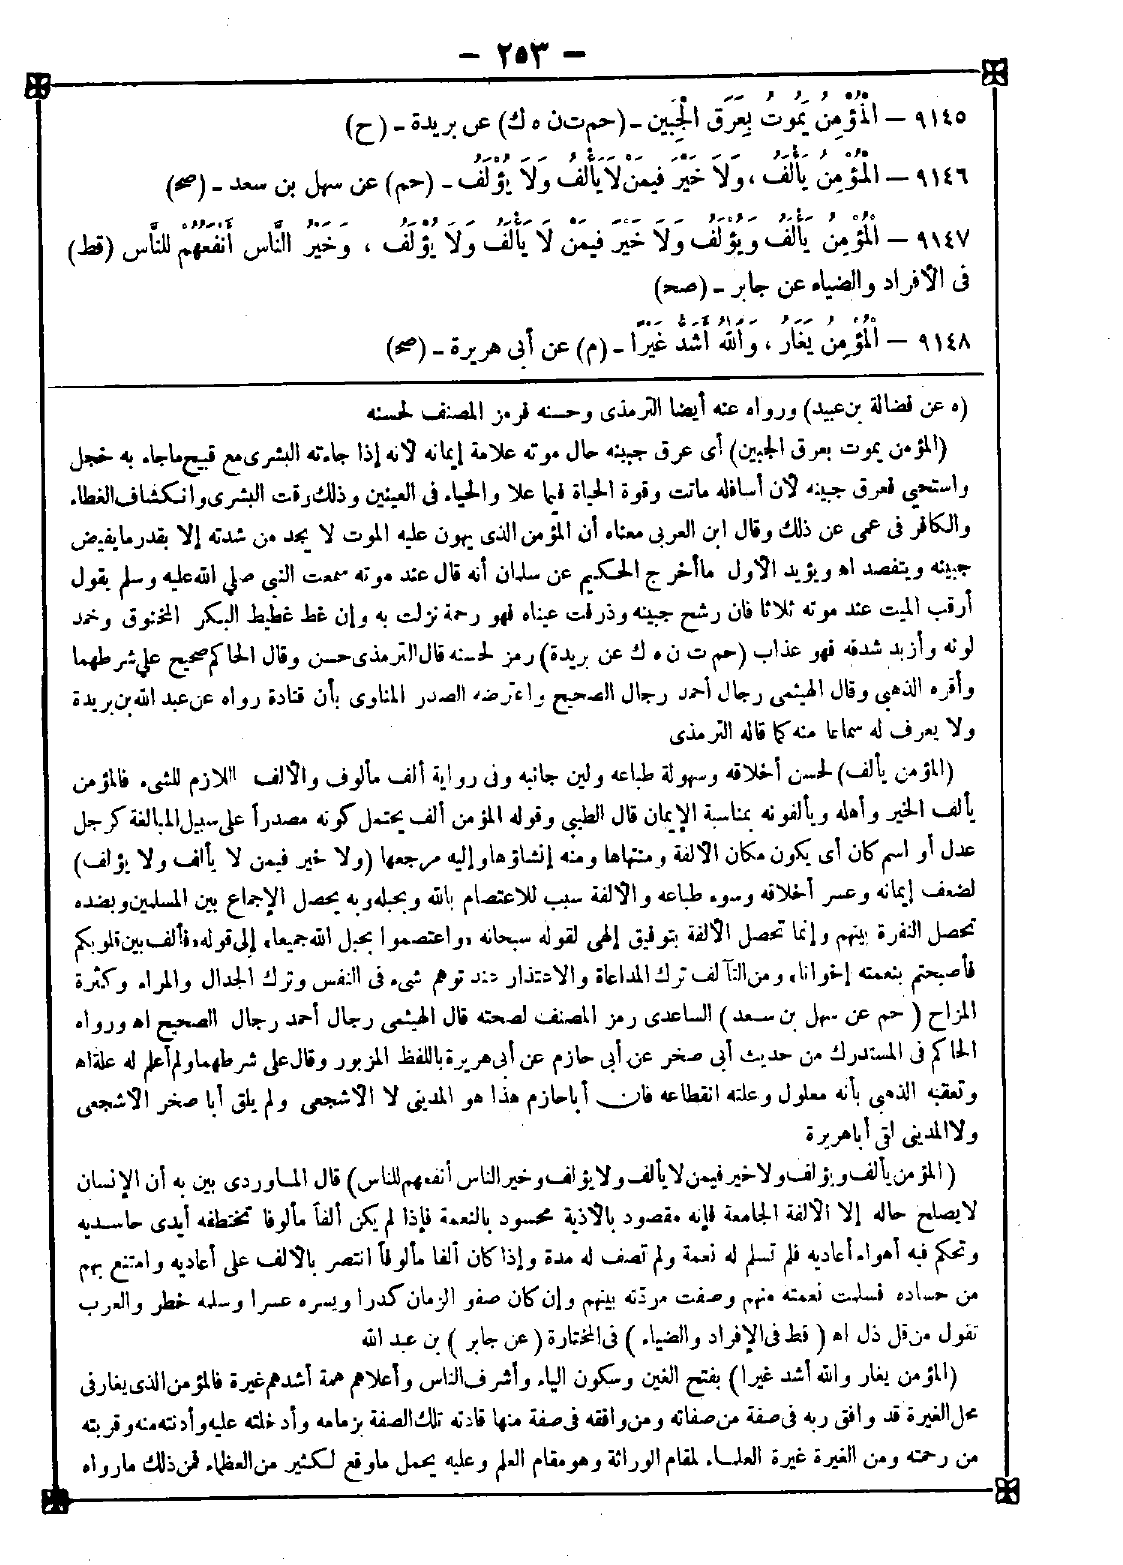 — ٢٥٣ —
٩١٤٥ — الْمُؤْمِنُ يَمُوتُ بِعَرَقِ الْجَبِينِ - (حم ت ن ه ك) عن بريدة - (ح)
٩١٤٦ — الْمُؤْمِنُ يَأْلَفُ ، وَلَا خَيْرَ فِيمَنْ لَا يَأْلَفُ وَلَا يُؤْلَفُ - (حم) عن سهل بن سعد - (صح)
٩١٤٧ — الْمُؤْمِنُ يَأْلَفُ وَيُؤْلَفُ وَلَا خَيْرَ فِيمَنْ لَا يَأْلَفُ وَلَا يُؤْلَفُ ، وَخَيْرُ النَّاسِ أَنْفَعُهُمْ لِلنَّاسِ (قط)
فى الأفراد والضياء عن جابر - (صح)
٩١٤٨ — الْمُؤْمِنُ يَغَارُ ، وَاللهُ أَشَدُّ غَيْرًا - (م) عن أبى هريرة - (صح)
(ه عن فضالة بن عبيد) ورواه عنه أيضا الترمذى وحسنه فرمز المصنف لحسنه
(المؤمن يموت بعرق الجبين) أى عرق جبينه حال موته علامة إيمانه لأنه إذا جاءته البشرى مع قبيح ما جاء به خجل
واستحيى فعرق جبينه لأن أسافله ماتت وقوة الحياة فيما علا والحياء فى العينين وذلك وقت البشرى وانكشاف الغطاء
والكافر فى عمى عن ذلك وقال ابن العربى معناه أن المؤمن الذى يهون عليه الموت لا يجد من شدته إلا بقدر ما يفيض
جبينه ويتفصد اه ويؤيد الأول ما أخرج الحكيم عن سلمان أنه قال عند موته سمعت النبى صلى الله عليه وسلم يقول
أرقب الميت عند موته ثلاثا فان رشح جبينه وذرفت عيناه فهو رحمة نزلت به وإن غط غطيط البكر المخنوق وخمد
لونه وأزبد شدقه فهو عذاب (حم ت ن ه ك عن بريدة) رمز لحسنه قال الترمذى حسن وقال الحاكم صحيح على شرطهما
وأقره الذهبى وقال الهيثمى رجال أحمد رجال الصحيح واعترضه الصدر المناوى بأن قتادة رواه عن عبد الله بن بريدة
ولا يعرف له سماعا منه كما قاله الترمذى
(المؤمن يألف) لحسن أخلاقه وسهولة طباعه ولين جانبه وفى رواية ألف مألوف والألف اللازم للشىء فالمؤمن
يألف الخير وأهله ويألفونه بمناسبة الإيمان قال الطيبى وقوله المؤمن ألف يحتمل كونه مصدرا على سبيل المبالغة كرجل
عدل أو اسم كان أى يكون مكان الألفة ومنتهاها ومنه إنشاؤها وإليه مرجعها (ولا خير فيمن لا يألف ولا يؤلف)
لضعف إيمانه وعسر أخلاقه وسوء طباعه والألفة سبب للاعتصام بالله وبحبله وبه يحصل الإجماع بين المسلمين وبضده
تحصل النفرة بينهم وإنما تحصل الألفة بتوفيق إلهى لقوله سبحانه «واعتصموا بحبل الله جميعا» إلى قوله «فألف بين قلوبكم
فأصبحتم بنعمته إخوانا» ومن التآلف ترك المداعاة والاعتذار عند توهم شىء فى النفس وترك الجدال والمراء وكثرة
المزاح (حم عن سهل بن سعد) الساعدى رمز المصنف لصحته قال الهيثمى رجال أحمد رجال الصحيح اه ورواه
الحاكم فى المستدرك من حديث أبى صخر عن أبى حازم عن أبى هريرة باللفظ المزبور وقال على شرطهما ولم أعلم له علة اه
وتعقبه الذهبى بأنه معلول وعلته انقطاعه فان أبا حازم هذا هو المدينى لا الأشجعى ولم يلق أبا صخر الأشجعى
ولا المدينى لقى أبا هريرة
(المؤمن يألف ويؤلف ولا خير فيمن لا يألف ولا يؤلف وخير الناس أنفعهم للناس) قال الماوردى بين به أن الإنسان
لا يصلح حاله إلا الألفة الجامعة فإنه مقصود بالأذية محسود بالنعمة فإذا لم يكن ألفا مألوفا تختطفه أيدى حاسديه
وتحكم فيه أهواء أعاديه فلم تسلم له نعمة ولم تصف له مدة وإذا كان ألفا مألوفا انتصر بالألف على أعاديه وامتنع بهم
من حساده فسلمت نعمته منهم وصفت مودته بينهم وإن كان صفو الزمان كدرا ويسره عسرا وسلمه خطر والعرب
تقول من قل ذل اه (قط فى الإفراد والضياء) فى المختارة (عن جابر) بن عبد الله
(المؤمن يغار والله أشد غيرا) بفتح الغين وسكون الياء وأشرف الناس وأعلاهم همة أشدهم غيرة فالمؤمن الذى يغار فى
محل الغيرة قد وافق ربه فى صفة من صفاته ومن وافقه فى صفة منها قادته تلك الصفة بزمامه وأدخلته عليه وأدنته منه وقربته
من رحمته ومن الغيرة غيرة العلماء لمقام الوراثة وهو مقام العلم وعليه يحمل ما وقع لكثير من العظماء فمن ذلك ما رواه